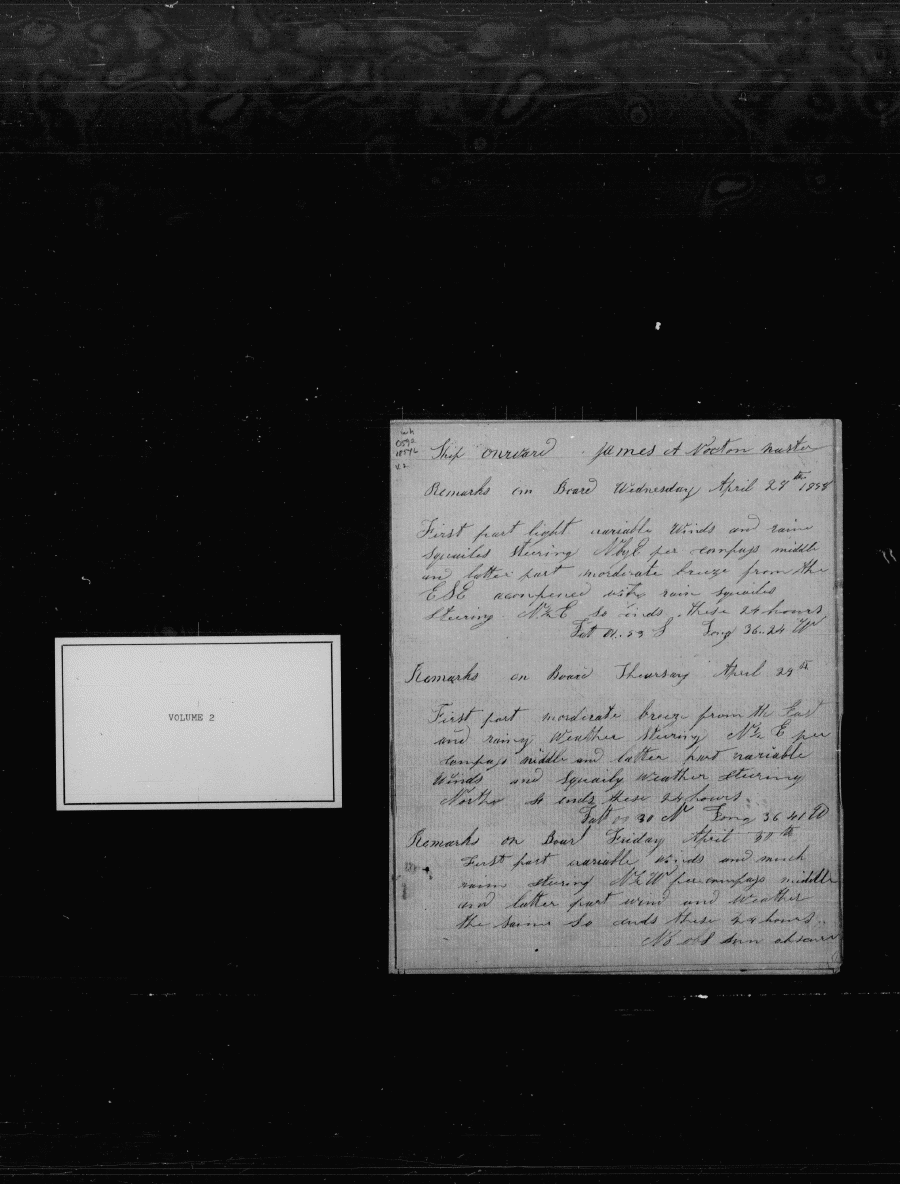 VOLUME 2
wh
0592
1854L
v.2
Ship onward James A Norton master
Remarks on Board Wednesday April 28th 1858
First part light variable Winds and rain
squailes steering NbyE per compass middle
and latter part morderate breeze from the
ESE acompened with rain squailes
steering N2E so ends these 24 hours
Lat 01..53 S Long 36..24 W
Remarks on Board Thearsday April 29th
First part morderate breeze from the East
and rainy Weather steering N2E per
compass middle and latter part variable
Winds and squaily Weather steering
North so ends these 24 hours
Lat 00 30 N Long 36 40 W
Remarks on Board Friday April 30th
First part variable winds and much
rain steering N2W per compass middle
and latter part wind and Weather
the same So ends these 24 hours
No obs sun obscure